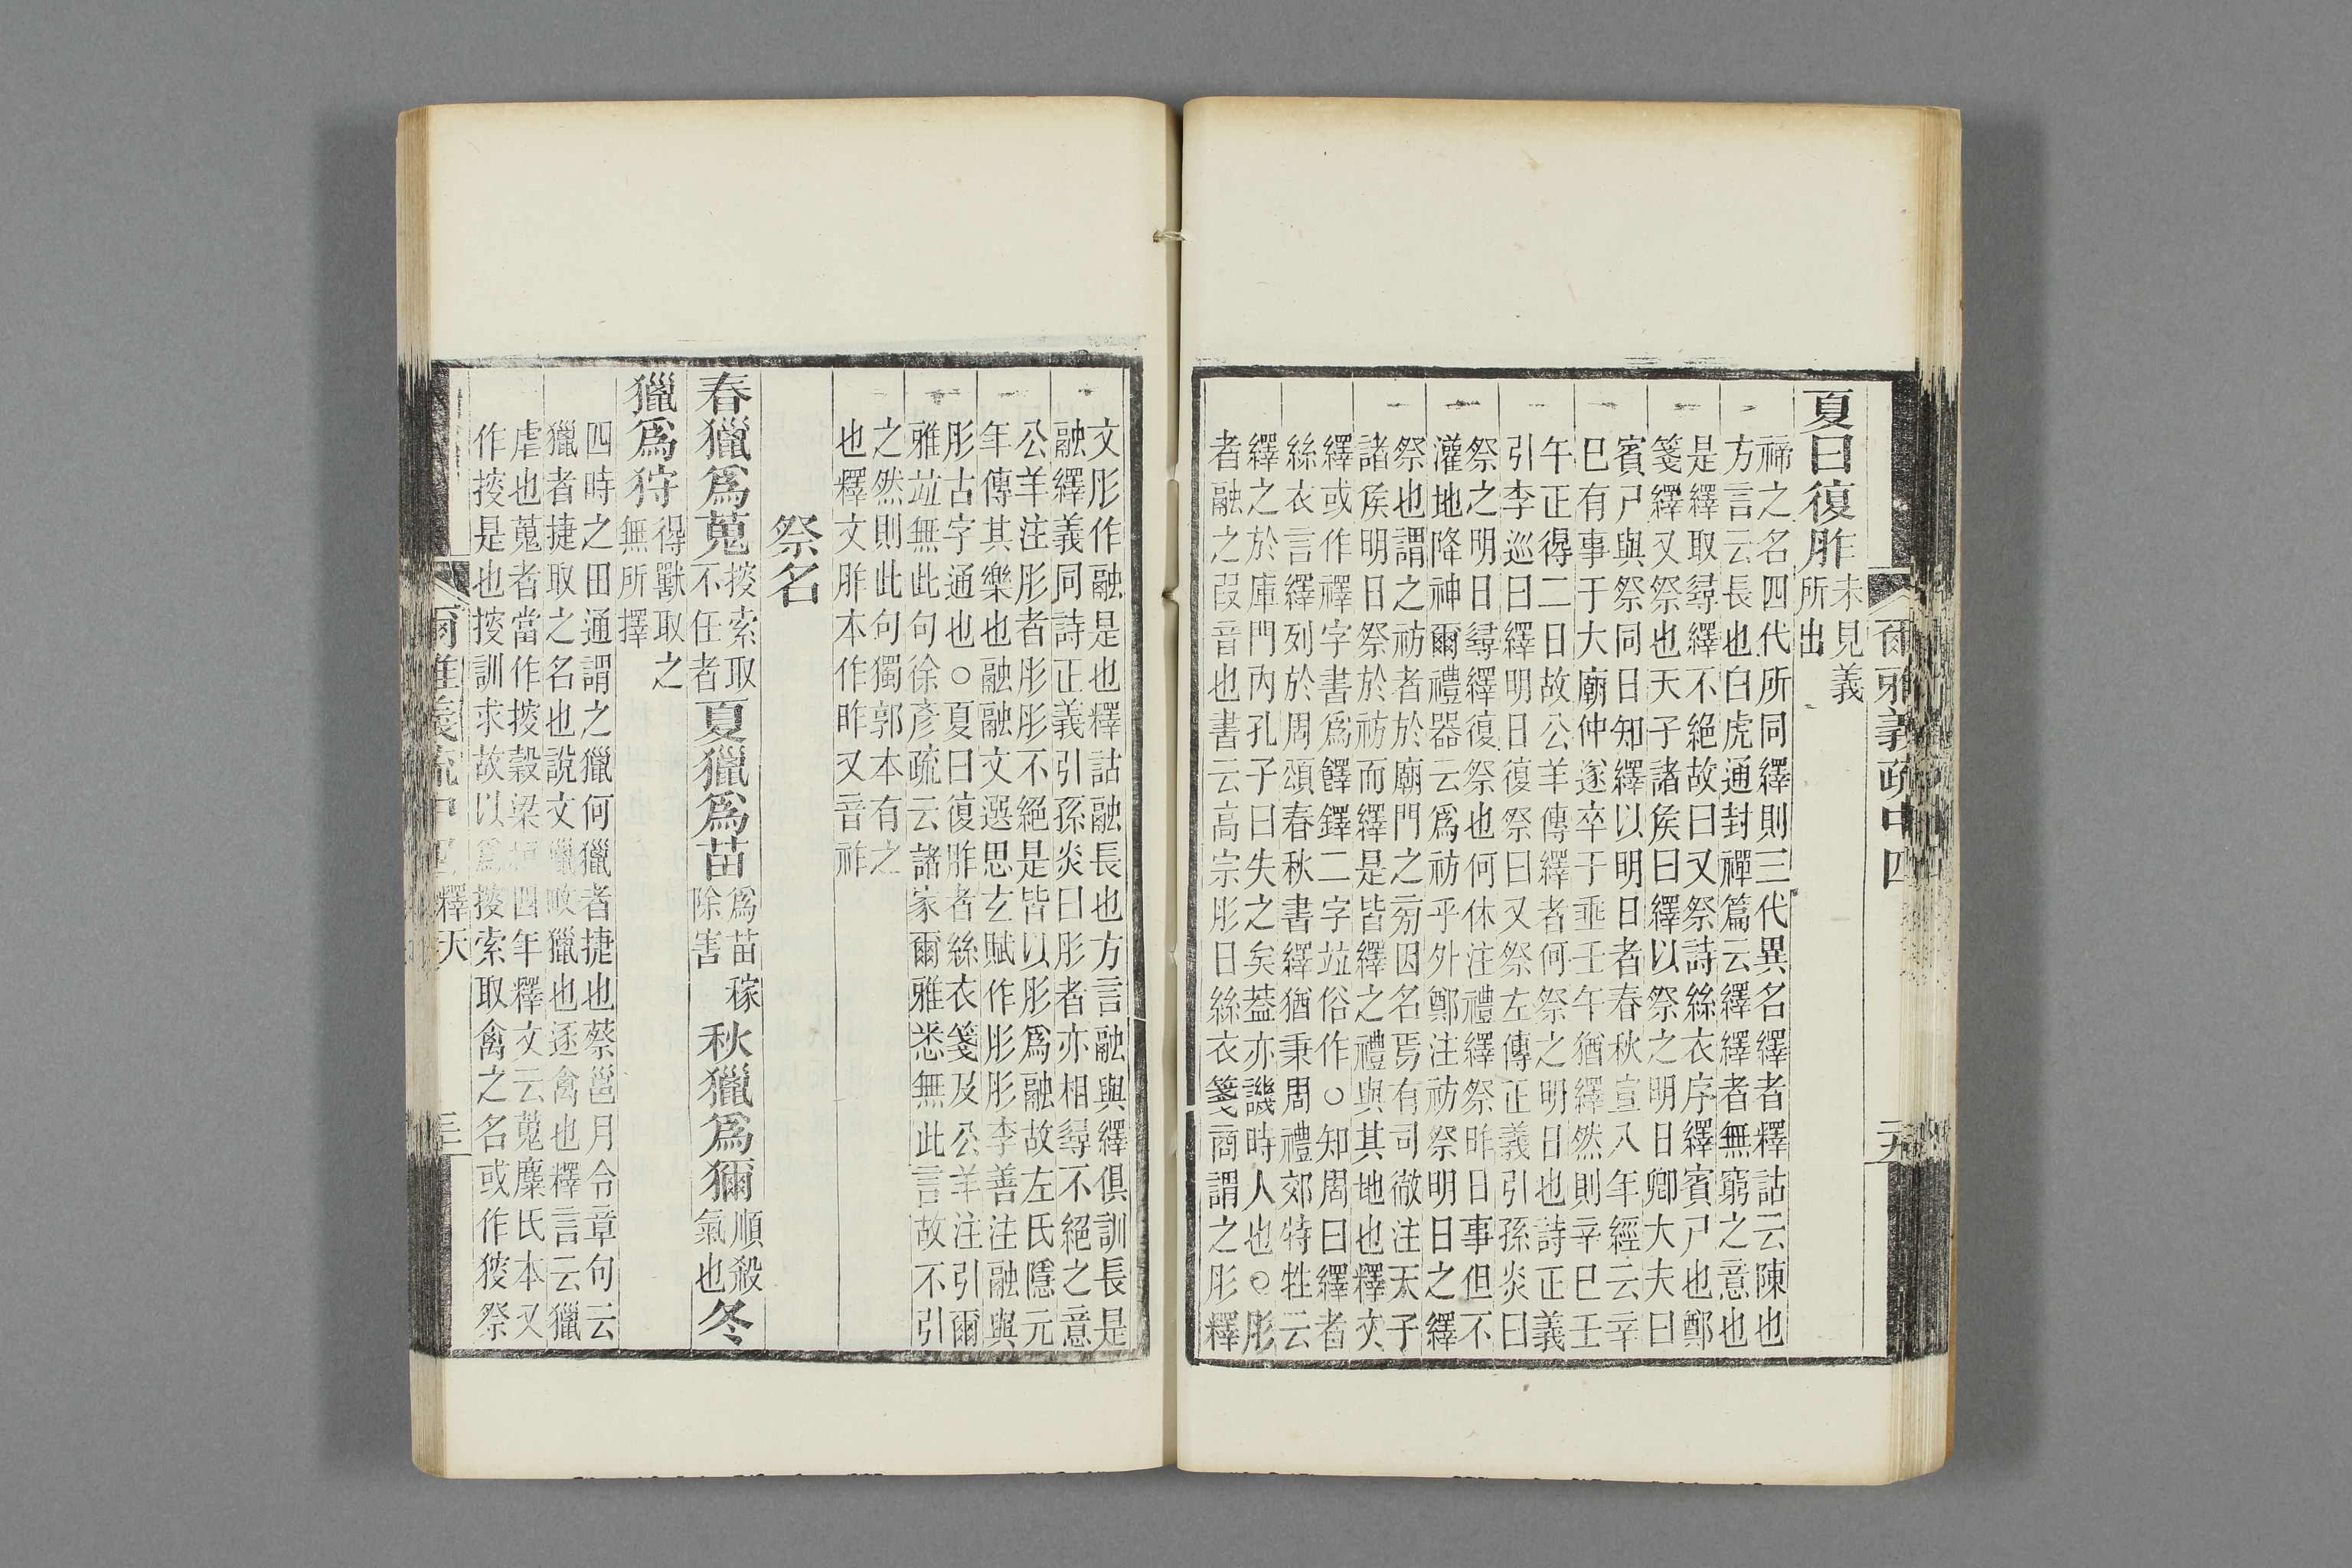 爾雅義疏中四
二九
夏曰復胙未見義
所出
禘之名四代所同繹則三代異名繹者釋詁云陳也
方言云長也白虎通封禪篇云繹繹者無窮之意也
是繹取尋繹不絕故曰又祭詩絲衣序繹賓尸也鄭
箋繹又祭也天子諸矦曰繹以祭之明日卿大夫曰
賓尸與祭同日知繹以明日者春秋宣八年經云辛
巳有事于大廟仲遂卒于垂壬午猶繹然則辛巳壬
午正得二日故公羊傳繹者何祭之明日也詩正義
引李巡曰繹明日復祭曰又祭左傳正義引孫炎曰
祭之明日尋繹復祭也何休注禮繹祭昨日事但不
灌地降神爾禮器云爲祊乎外鄭注祊祭明日之繹
祭也謂之祊者於廟門之旁因名焉有司徹注天子
諸矦明日祭於祊而繹是皆繹之禮與其地也釋文
繹或作襗字書爲䭞鐸二字竝俗作○知周曰繹者
絲衣言繹列於周頌春秋書繹猶秉周禮郊特牲云
繹之於庫門內孔子曰失之矣葢亦譏時人也○肜
者融之叚音也書云高宗肜日絲衣箋商謂之肜釋
文肜作融是也釋詁融長也方言融與繹俱訓長是
融繹義同詩正義引孫炎曰肜者亦相尋不絕之意
公羊注肜者肜肜不絕是皆以肜爲融故左氏隱元
年傳其樂也融融文選思玄賦作肜肜李善注融與
肜古字通也○夏曰復胙者絲衣箋及公羊注引爾
雅竝無此句徐彥疏云諸家爾雅悉無此言故不引
之然則此句獨郭本有之
也釋文胙本作昨又音祚
祭名
春獵爲蒐搜索取
不任者夏獵爲苗爲苗稼
除害秋獵爲獮順殺
氣也冬
獵爲狩得獸取之
無所擇
四時之田通謂之獵何獵者捷也蔡邕月令章句云
獵者捷取之名也說文獵畋獵也逐禽也釋言云獵
虐也蒐者當作搜穀梁桓四年釋文云蒐麋氏本又
作搜是也搜訓求故以爲搜索取禽之名或作獀祭
爾雅義疏中四釋天
三十